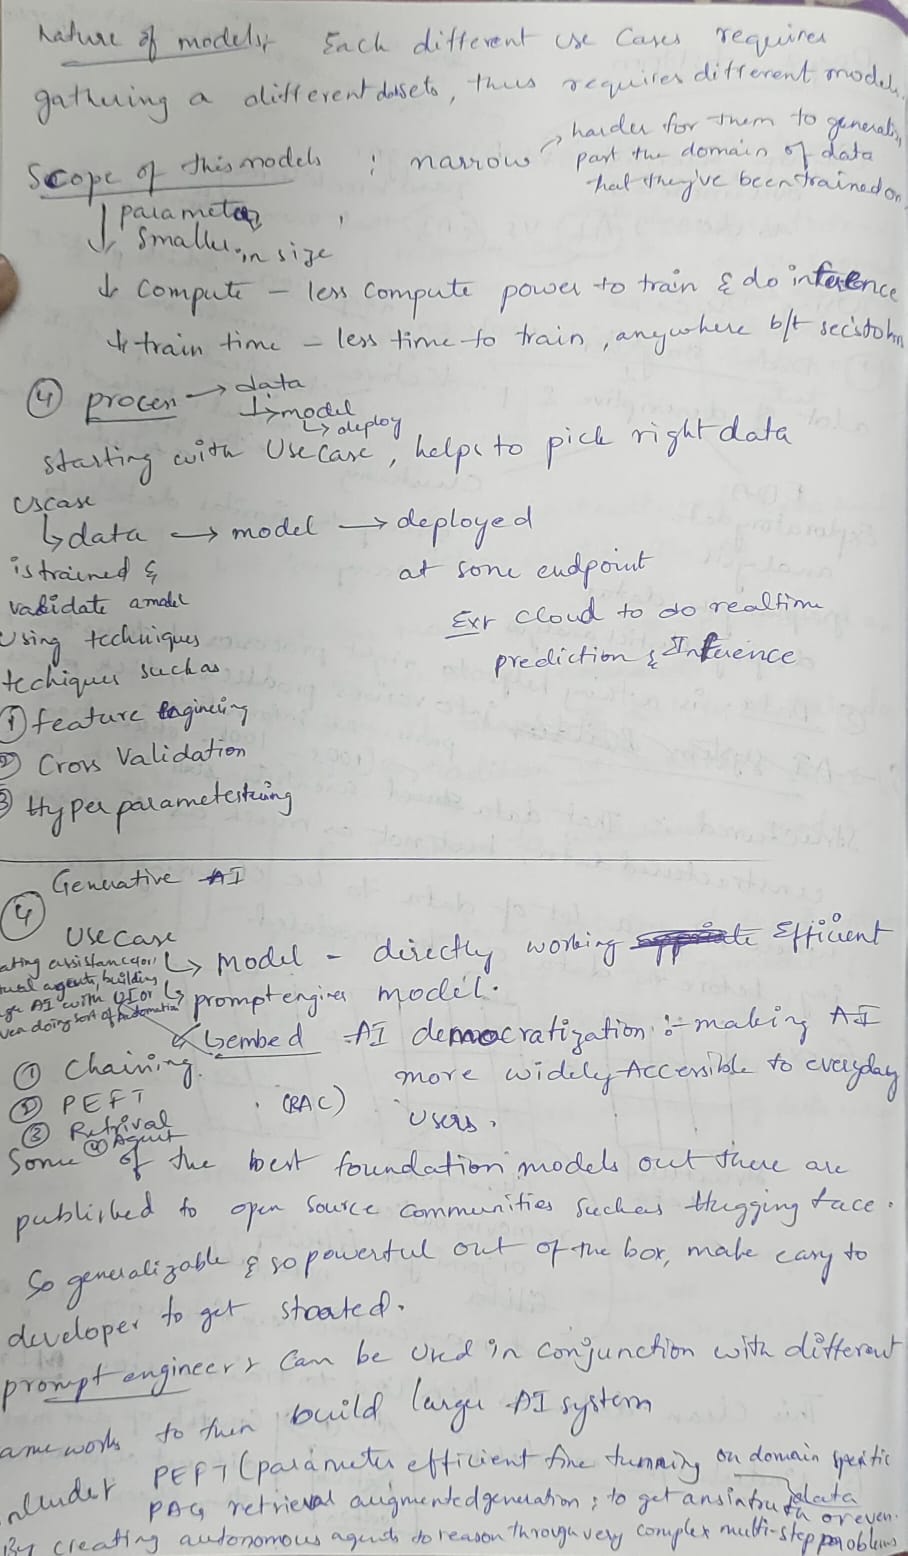 Nature of models:- Each different use cases requires
gathering a different datasets, thus requires different models.
Scope of this models : narrow → harder for them to generaliz
past the domain of data
that they've been trained on
↓ parameters,
smaller in size
↓ compute - less compute power to train & do inference
↓ train time - less time to train, anywhere b/t sec's to hr
④ process → data
↳ model
↳ deploy
starting with Use case, helps to pick right data
Uscase
↳ data → model → deployed
is trained & at some endpoint
validate a model Ex:- cloud to do realtime
Using techniques prediction & Inference
techiques such as
① feature Engineering
② Cross Validation
③ Hyper parametestuning
Generative AI
④
Use case
ating assistance for
tual agents, building
AI with UI or
ven doing sort of Automation
↳ model - directly working Efficient
↳ prompt engineer model.
↳ embed AI democratization :- making AI
more widely Accessible to everyday
Users.
① Chaining.
② PEFT
③ Retrival (RAG)
④ Agent
Some of the best foundation models out there are
published to open source communities such as Hugging face.
So generalizable & so powerful out of the box, make easy to
developer to get stoated.
prompt engineer:- Can be Used in conjunction with different
ameworks to then build larger AI system
PEFT (parameter efficient fine tunning on domain specific
data
RAG retrieval augmented generation ; to get ans in truth or even
By creating autonomous agents to reason through very complex multi-step problems